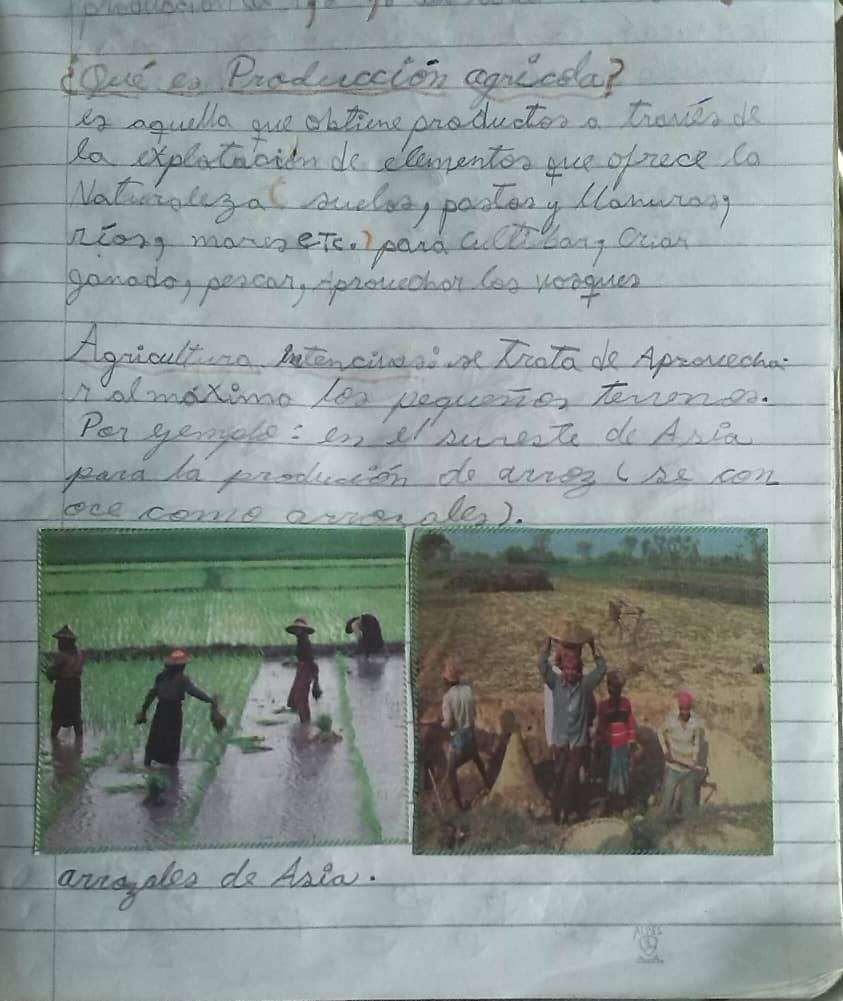 ¿Qué es Producción agrícola?
es aquella que obtiene productos a través de
la explotación de elementos que ofrece la
Naturaleza ( suelos, pastos y llanuras,
ríos, mares eTc.) para cultibar, criar
ganado, pescar, Aprovechar los vosques
Agricultura Intenciva: se Trata de Aprovecha-
r al máximo los pequeños terrenos.
Por gemplo: en el sureste de Asia
para la produción de arroz ( se con
oce como arrozales).
arrozales de Asia.
ALPES